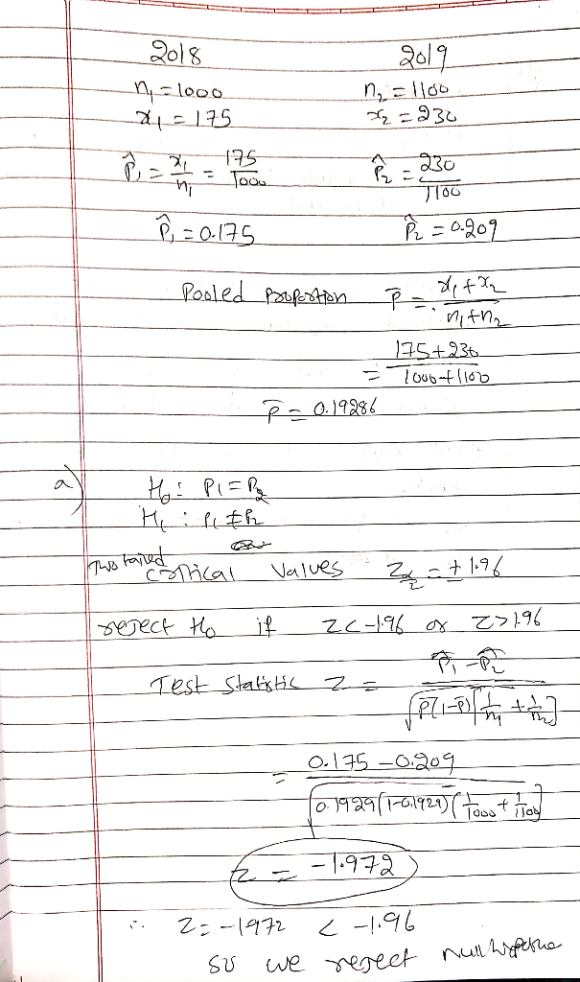 2018 2019
n₁ = 1000 n₂ = 1100
x₁ = 175 x₂ = 230
p̂₁ = x₁/n₁ = 175/1000 p̂₂ = 230/1100
p̂₁ = 0.175 p̂₂ = 0.209
Pooled proportion p̄ = x₁+x₂/n₁+n₂
= 175+230/1000+1100
p̄ = 0.19286
a) H₀ : P₁ = P₂
H₁ : P₁ ≠ P₂
Two tailed
critical values Z_α/2 = ± 1.96
reject H₀ if Z < -1.96 or Z > 1.96
Test Statistic Z = p̂₁ - p̂₂ / √[p̄(1-p̄)(1/n₁ + 1/n₂)]
= 0.175 - 0.209 / √[0.1929(1-0.1929)(1/1000 + 1/1100)]
Z = -1.972
∴ Z = -1972 < -1.96
so we reject null